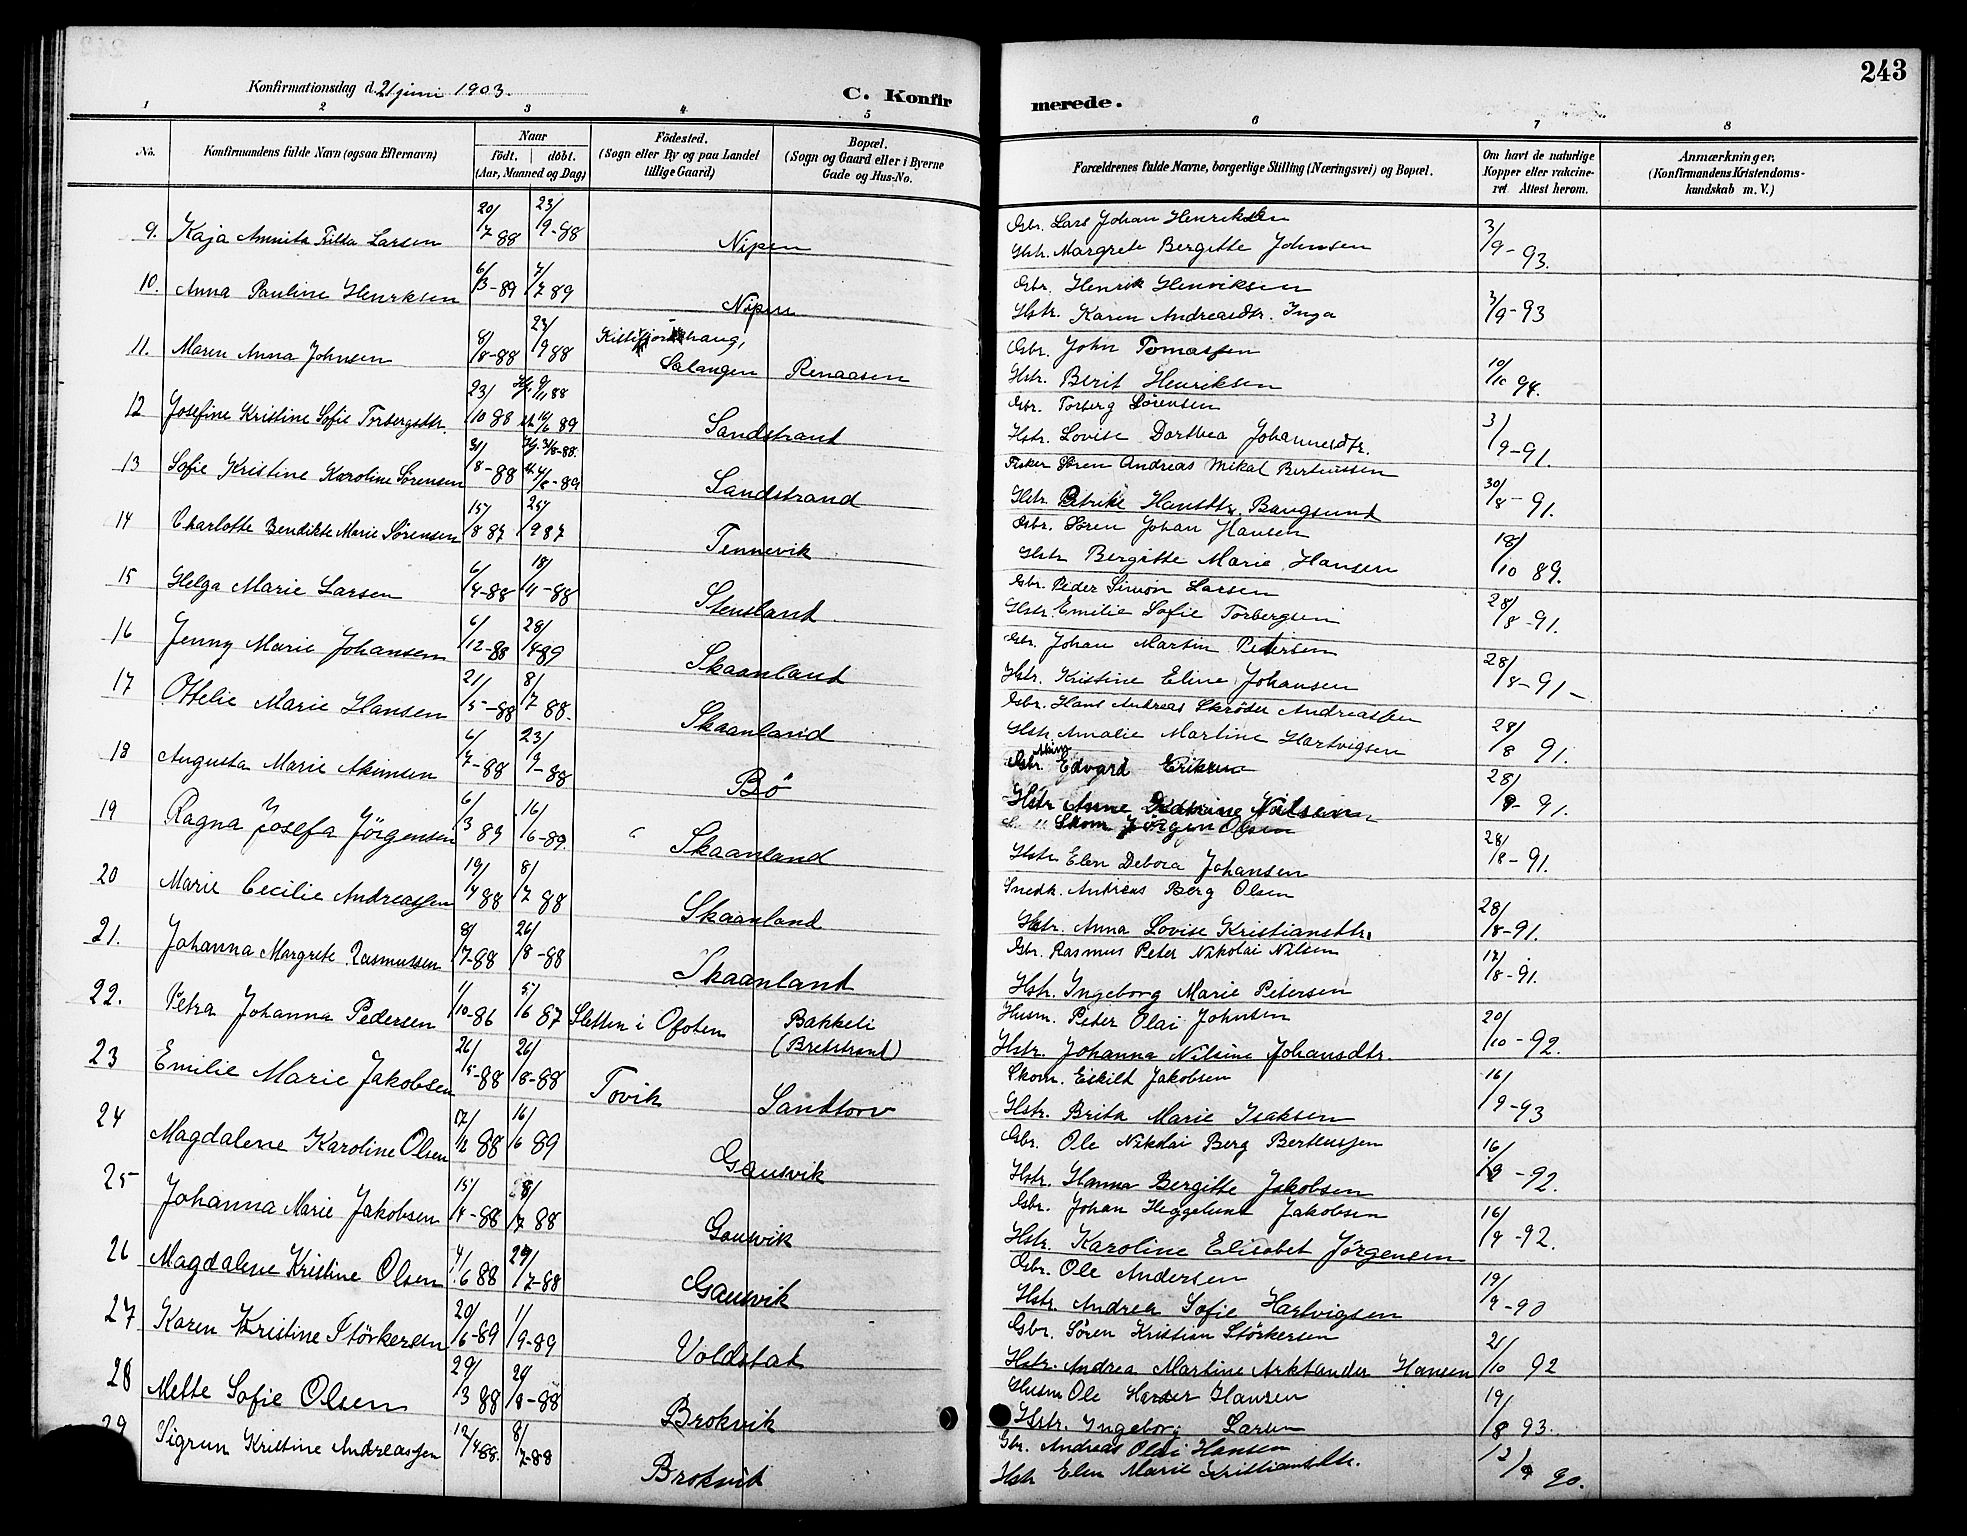 Konfirmationsdag d. 21 juni 1903.
C. Konfir
1 2 3 4 5
No.
Konfirmandens fulde Navn (ogsaa Efternavn)
Naar
födt. döbt.
(Aar, Maaned og Dag)
Födested.
(Sogn eller By og paa Landet
tillige Gaard)
Bopæl.
(Sogn og Gaard eller i Byerne
Gade og Hus-No.
9. Kaja Annita Larsen 20/7 88 23/9-88 Nipen
10. Anna Pauline Henrksen 6/3-89 7/7 89 Nipen
11. Maren Anna Johnsen 8/8-88 23/9 88
Salangen Renaasen
12 Josefine Kristine Sofie Torbergsdtr. 23/10 88 Hj. 9/11 88 st. 16/6 89 Sandstrand
13 Sofie Kristine Karoline Sørensen 31/8-88 Hj. 31/8-88. st. 4/6-89 Sandstrand
14 Charlotte Bendikte Marie Sørensen 15/8 87 25/9 87 Tennevik
15 Helga Marie Larsen 6/4-88 18/11-88 Stensland
16 Jenny Marie Johansen 6/12-88 28/4-89 Skaanland
17 Ottelie Marie Hansen 21/5-88 8/7 88. Skaanland
18 Augusta Marie Akimsen 6/7-88 23/9-88 Bö
19 Ragna Josefa Jörgensen 6/3 89 16/6-89. Skaanland
20 Marie Cecilie Andreassen 19/4 88 8/7 88 Skaanland
21. Johanna Margrete Rasmussen 8/7-88 26/8-88 Skaanland
22. Petra Johanna Pedersen 1/10-86 5/6 87 Sletten i Ofoten Bakkeli
(Bredstrand)
23 Emilie Marie Jakobsen 26/5-88 26/8-88 Tovik Sandtorv
24 Magdalene Karoline Olsen 17/12 88 16/6 89 Gausvik
25 Johanna Marie Jakobsen 15/4-88 8/7 88 Gausvik
26 Magdalene Kristine Olsen 4/6 88 29/7-88 Gausvik
27 Karen Kristine Störkersen 20/6-89 1/9-89 Voldstat
28 Mette Sofie Olsen 29/3 88 Brokvik
29 Sigrun Kristine Andreassen 12/4 88. 8/7-88 Brokvik
merede.
243
6 7 8
Forældrenes fulde Navne, borgerlige Stilling (Næringsvei) og Bopæl.
Om havt de naturlige
Kopper eller vakcine-
ret. Attest herom.
Anmærkninger.
(Konfirmandens Kristendoms-
kundskab m. V.)
Gbr. Lars Johan Henriksen
Hstr. Margrete Bergitte Johnsen 3/9-93.
Gbr. Henrik Henriksen
Hstr. Karen Andreasdtr. Inga 3/9-93
Gbr. John Tomassen
Hstr. Berit Henriksen 10/10 94.
Gbr. Torberg Sörensen
Hstr. Lovise Dorthea Johannesdtr. 3/9-91.
Fisker Sören Andreas Mikal Berteussen
Hstr. Petrike Hansdtr. Baugsund 30/8-91.
Gbr. Sören Johan Hansen
Hstr Bergitte Marie Hansen 18/10 89.
Gbr. Peder Simon Larsen
Hstr. Emilie Sofie Torbergsen 28/8-91.
Gbr. Johan Martin Petersen
Hstr. Kristine Eline Johansen 28/8-91-
Gbr. Hans Andreas Skröder Andreassen
Hstr. Amalie Martine Hartvigsen 28/8 91.
Gbr. Edvard Eriksen
Hstr Anne Katrine Nilsen 28/8-91.
Skom Jörgen Olsen
Hstr. Elen Debora Johansen 28/8-91.
Snedk. Andreas Berg Olsen
Hstr. Anna Lovise Kristiansdtr. 28/8-91.
Gbr. Rasmus Peter Nikolai Nilsen
Hstr. Ingeborg Marie Petersen 12/8-91.
Husm. Peter Olai Johnsen
Hstr. Johanna Nilsine Johansdtr. 20/10-92.
Skom. Eskild Jakobsen
Hstr. Brita Marie Isaksen 16/9-93
Gbr. Ole Nikolai Berg Berteussen
Hstr. Hanna Bergitte Jakobsen 16/9-92.
Gbr. Johan Heggelund Jakobsen
Hstr. Karoline Elisabet Jörgensen 16/9-92.
Gbr. Ole Andersen
Hstr. Andrea Sofie Hartvigsen 19/9-90
Gbr. Sören Kristian Störkersen
Hstr. Andrea Martine Arktander Hansen 21/10 92
Husm Ole Hansen
Hstr. Ingeborg Larsen 19/8 93.
Gbr. Andreas Olai Hansen
Hstr Elen Marie Kristiansdtr. 12/9 90.